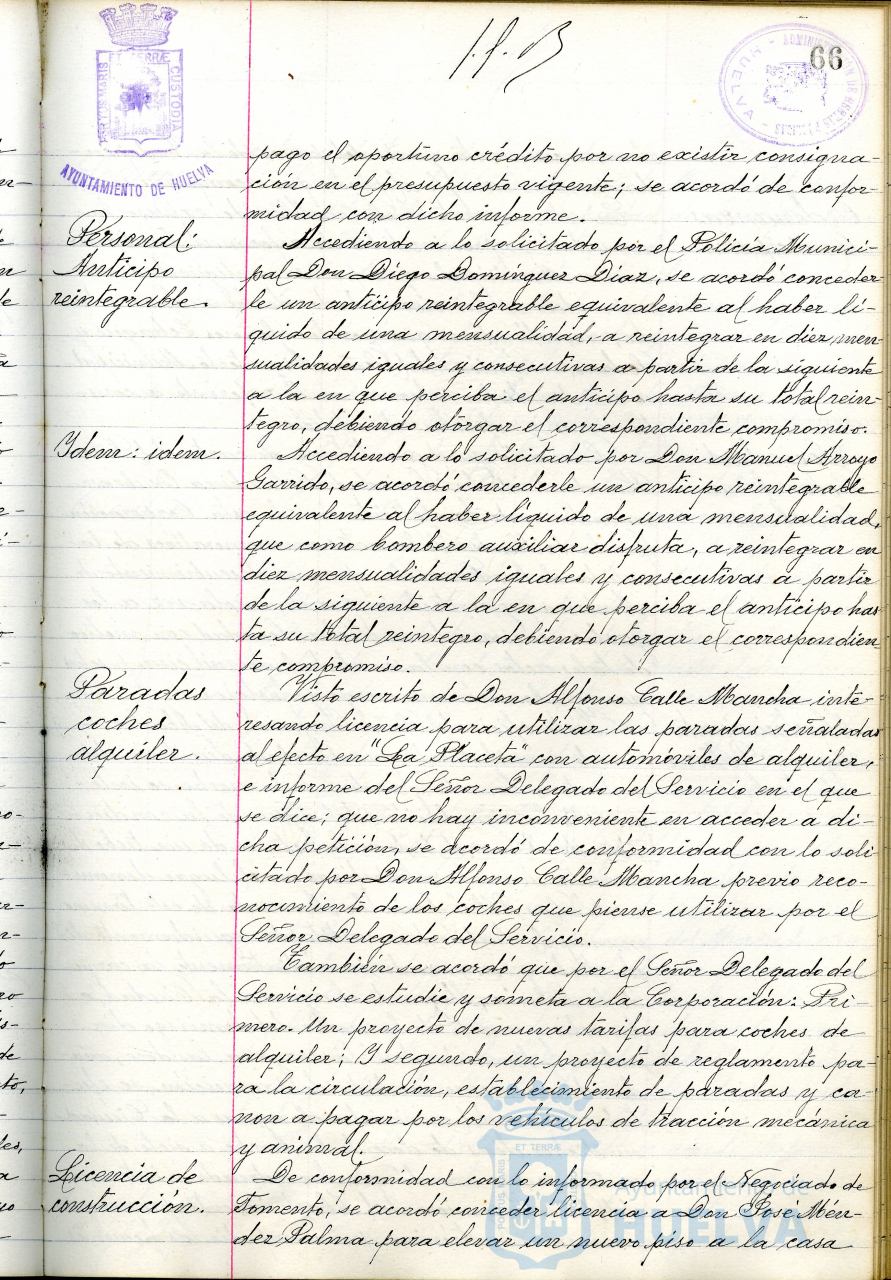 66
PORTUS MARIS ET TERRÆ CUSTODIA
AYUNTAMIENTO DE HUELVA
HUELVA
pago el oportuno crédito por no existir consigna-
ción en el presupuesto vigente; se acordó de confor-
midad con dicho informe.
Personal:
Anticipo
reintegrable.
Accediendo a lo solicitado por el Policía Munici-
pal Don Diego Domínguez Diaz, se acordó conceder-
le un anticipo reintegrable equivalente al haber lí-
quido de una mensualidad, a reintegrar en diez men-
sualidades iguales y consecutivas a partir de la siguiente
a la en que perciba el anticipo hasta su total rein-
tegro, debiendo otorgar el correspondiente compromiso.
Ydem: idem.
Accediendo a lo solicitado por Don Manuel Arroyo
Garrido, se acordó concederle un anticipo reintegrable
equivalente al haber líquido de una mensualidad,
que como bombero auxiliar disfruta, a reintegrar en
diez mensualidades iguales y consecutivas a partir
de la siguiente a la en que perciba el anticipo has-
ta su total reintegro, debiendo otorgar el correspondien-
te compromiso.
Paradas
coches
alquiler.
Visto escrito de Don Alfonso Calle Mancha inte-
resando licencia para utilizar las paradas señaladas
al efecto en "La Placeta" con automóviles de alquiler,
e informe del Señor Delegado del Servicio en el que
se dice; que no hay inconveniente en acceder a di-
cha petición, se acordó de conformidad con lo soli-
citado por Don Alfonso Calle Mancha previo reco-
nocimiento de los coches que piense utilizar por el
Señor Delegado del Servicio.
También se acordó que por el Señor Delegado del
Servicio se estudie y someta a la Corporación: Pri-
mero. Un proyecto de nuevas tarifas para coches de
alquiler; Y segundo, un proyecto de reglamento pa-
ra la circulación, establecimiento de paradas y ca-
non a pagar por los vehículos de tracción mecánica
y animal.
Licencia de
construcción.
De conformidad con lo informado por el Negociado de
Fomento, se acordó conceder licencia a Don Jose Mén-
dez Palma para elevar un nuevo piso a la casa
PORTUS MARIS ET TERRÆ
Ayuntamiento de
HUELVA